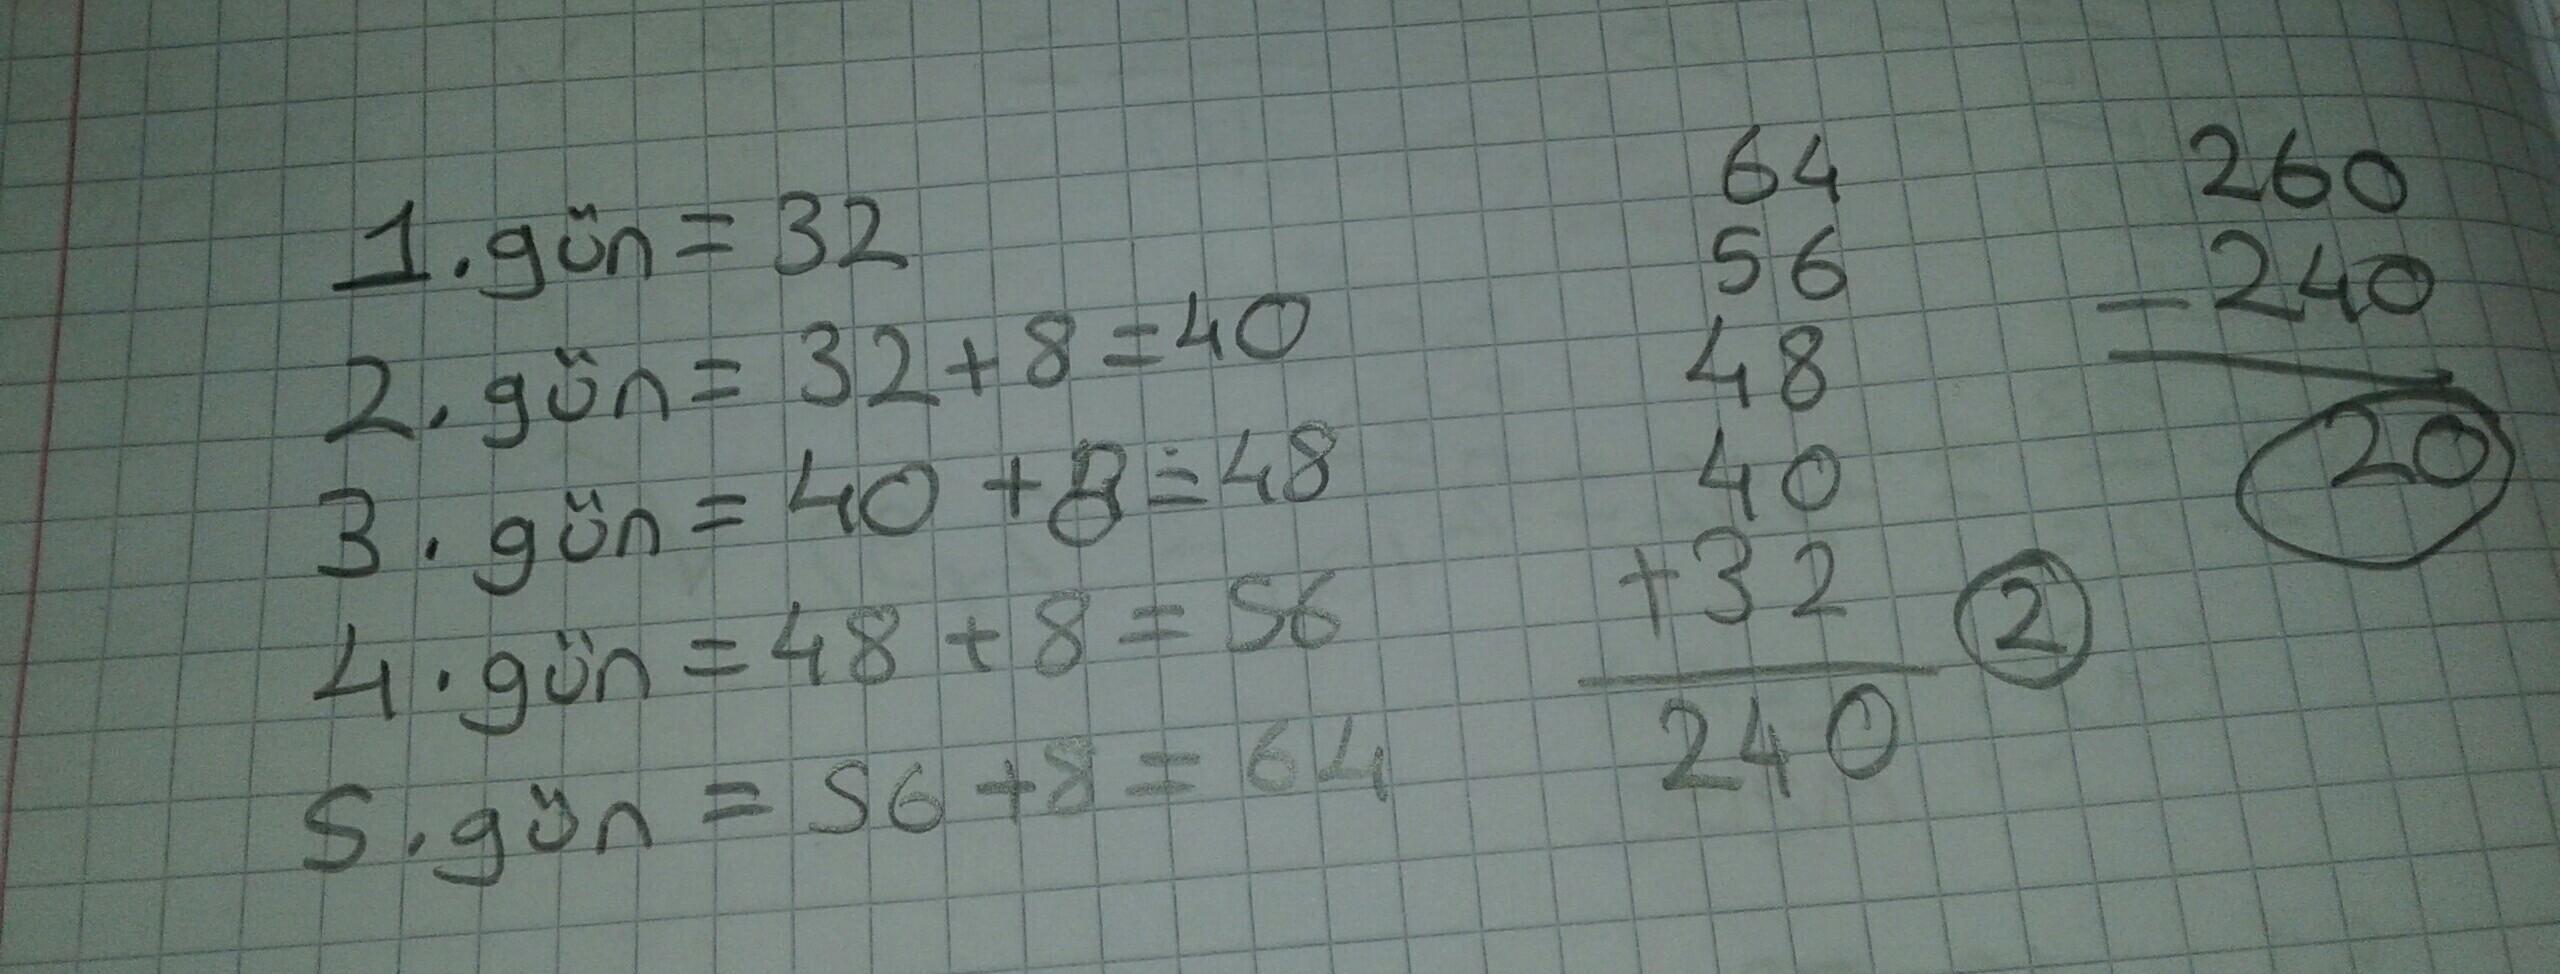 1. gün = 32
2. gün = 32 + 8 = 40
3. gün = 40 + 8 = 48
4. gün = 48 + 8 = 56
5. gün = 56 + 8 = 64
64
56
48
40
+32
2
240
260
- 240
20